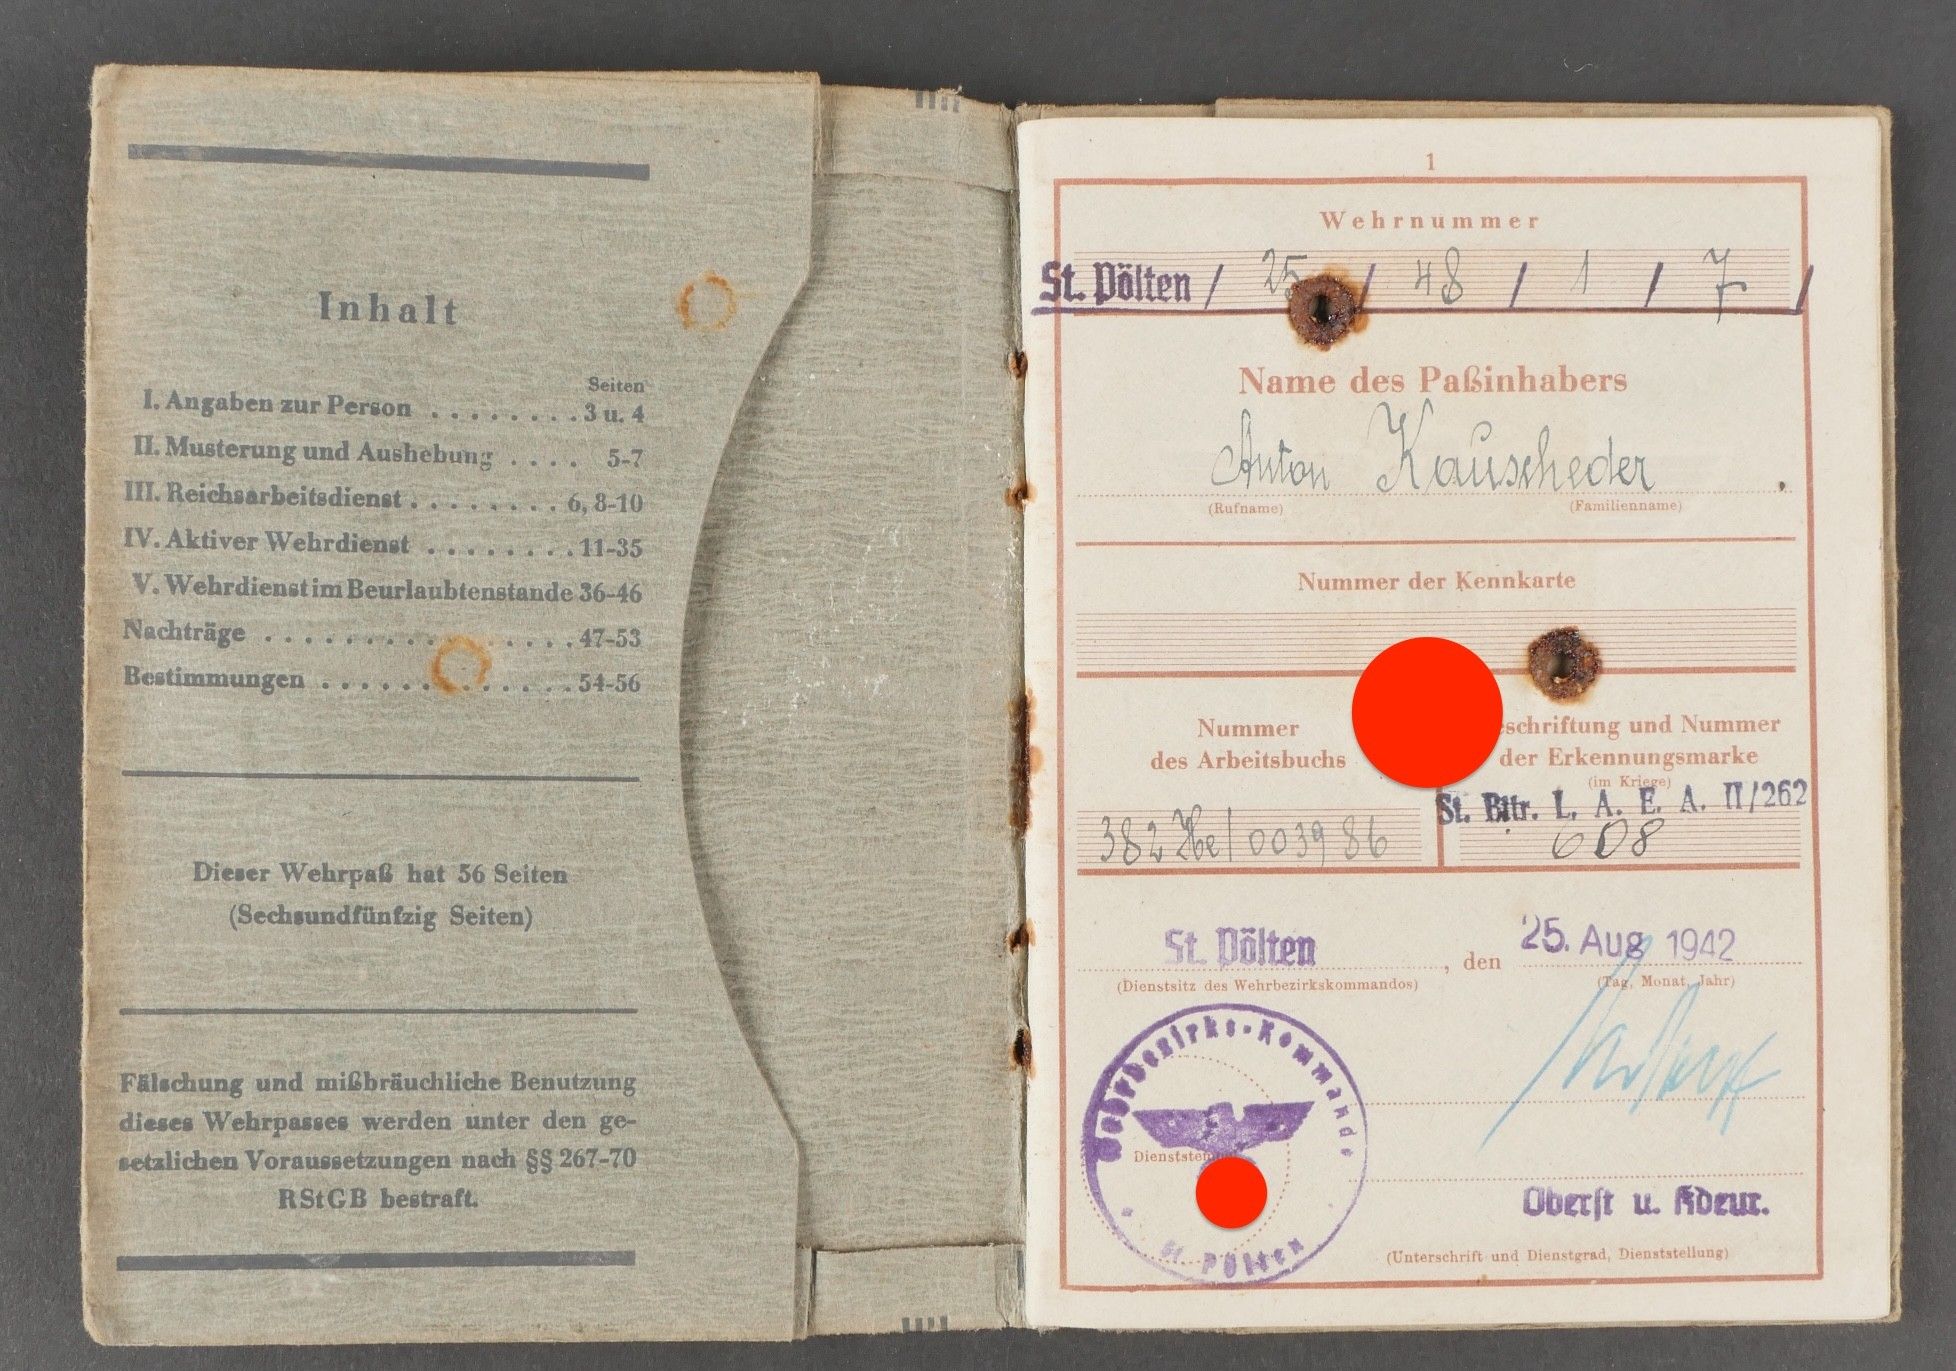 Inhalt
Seiten
I. Angaben zur Person ........ 3 u. 4
II. Musterung und Aushebung .... 5-7
III. Reichsarbeitsdienst ........ 6, 8-10
IV. Aktiver Wehrdienst ........ 11-35
V. Wehrdienst im Beurlaubtenstande 36-46
Nachträge ................ 47-53
Bestimmungen ............. 54-56
Dieser Wehrpaß hat 56 Seiten
(Sechsundfünfzig Seiten)
Fälschung und mißbräuchliche Benutzung
dieses Wehrpasses werden unter den ge-
setzlichen Voraussetzungen nach §§ 267-70
RStGB bestraft.
1
Wehrnummer
St. Pölten / 25 / 48 / 1 / 7 /
Name des Paßinhabers
Anton Kauscheder
(Rufname) (Familienname)
Nummer der Kennkarte
Nummer
des Arbeitsbuchs
eschriftung und Nummer
der Erkennungsmarke
(im Kriege)
St. Bttr. L. A. E. A. II/262
382 /003986
608
St. Pölten, den 25. Aug 1942
(Dienstsitz des Wehrbezirkskommandos) (Tag, Monat, Jahr)
Wehrbezirks-Kommando
Dienststem
St. Pölten
Oberst u. Kdeur.
(Unterschrift und Dienstgrad, Dienststellung)